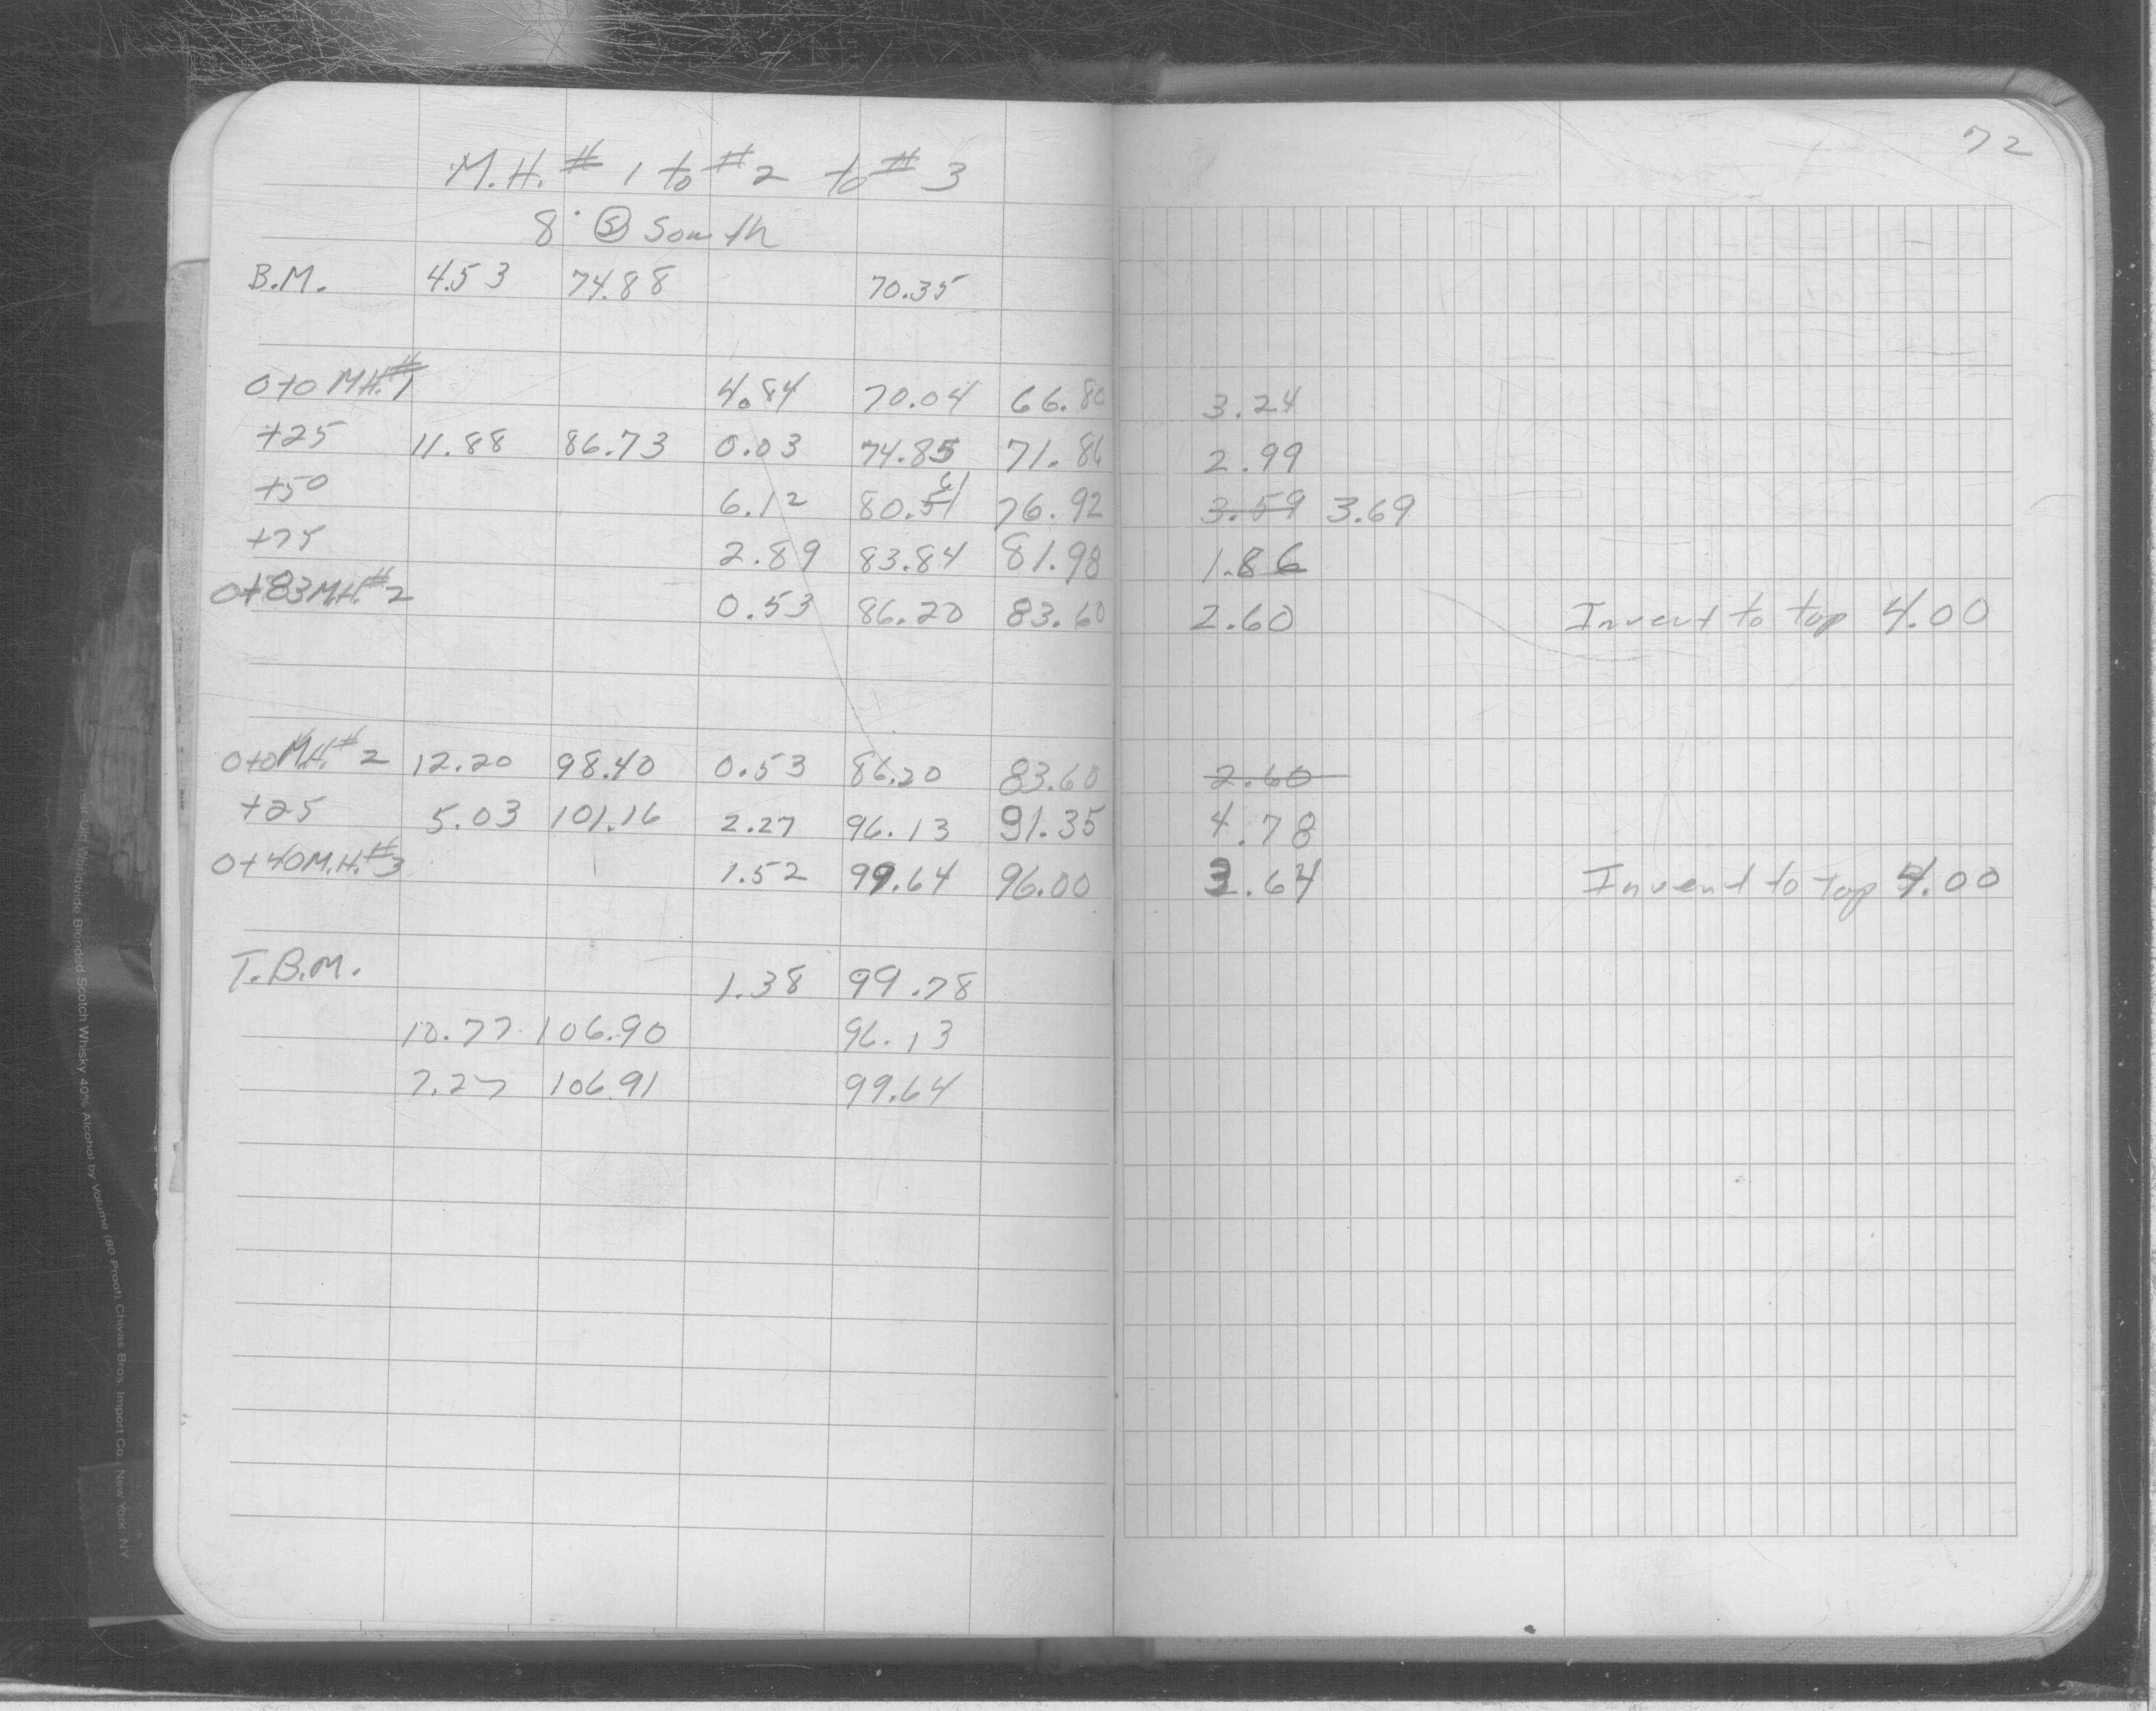 72
M.H. # 1 to # 2 to # 3
8" Ⓢ South
B.M. 4.53 74.88 70.35
0+0 MH.#1 4.84 70.04 66.80 3.24
+25 11.88 86.73 0.03 74.85 71.86 2.99
+50 6.12 80.51 61 76.92 3.59 3.69
+75 2.89 83.84 81.98 1.86
0+83 M.H.#2 0.53 86.20 83.60 2.60 Invert to top 4.00
0+0 M.H.#2 12.20 98.40 0.53 86.20 83.60 2.60
+25 5.03 101.16 2.27 96.13 91.35 4.78
0+40 M.H.#3 1.52 99.64 96.00 3.64 Invent to top 4.00
T.B.M. 1.38 99.78
10.77 106.90 96.13
7.27 106.91 99.64
Real Old Worldwide Blended Scotch Whisky 40% Alcohol by Volume (80 Proof) Chivas Bros. Import Co., New York, NY